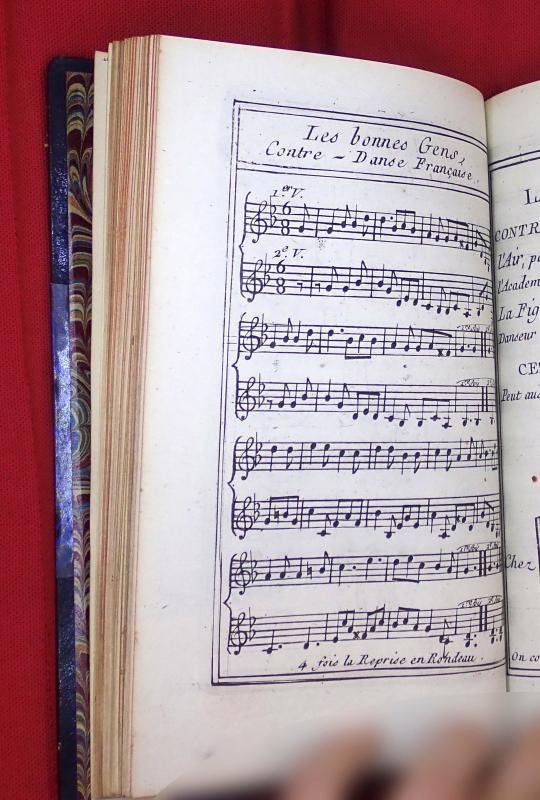 Les bonnes Gens,
Contre - Danse Française.
1er V.
6
8
2e. V.
6
8
4 fois la Reprise en Rondeau.
CONTR
l'Air, pa
l'Academ
La Fig
Danseur
CE
Peut aus
Chez
On co